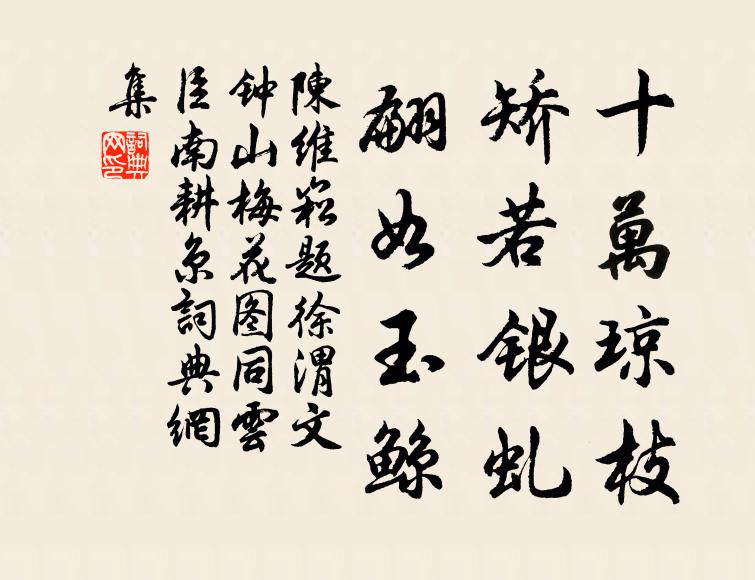 十萬琼枝
矯若銀虬
翩如玉鲸
陳維崧題徐渭文
钟山梅花图同雲
臣南耕京詞典網
集
詞典網印